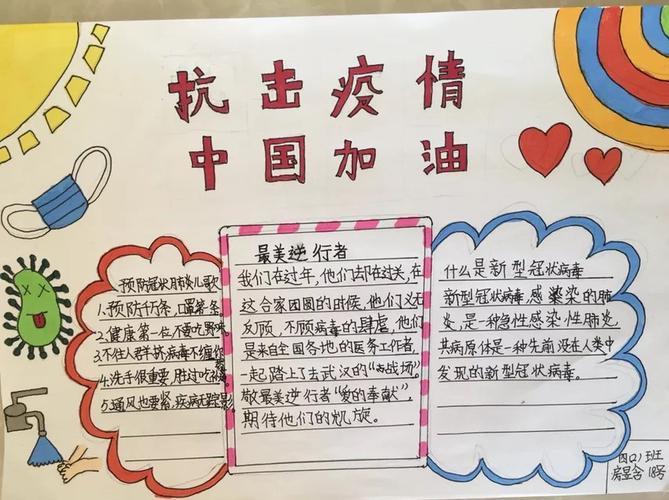 抗击疫情
中国加油
预防冠状肺炎儿歌
1.预防千万条,口罩第一条
2.健康第一位不要吃野味
3.不住人群挤,病毒不缠你
4.洗手很重要,胜过吃
5.通风也要紧,疾病无踪影
最美逆行者
我们在过年,他们却在过关,在
这合家团圆的时候,他们义无
反顾,不顾病毒的肆虐,他们
是来自全国各地的医务工作者,
一起踏上了去武汉的“战场”。
敬最美逆行者“爱的奉献”,
期待他们的凯旋。
什么是新型冠状病毒
新型冠状病毒,感染染的肺
炎,是一种急性感染性肺炎,
其病原体是一种先前没在人类中
发现的新型冠状病毒。
四(2)班
房昱含 18号